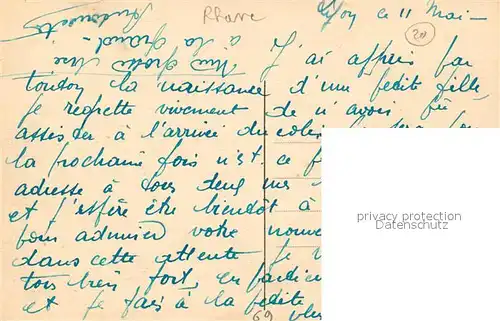 Rhône
Lyon ce 11 Mai -
20
J'ai appris par
Toudou la naissance d'une petite fille,
Je regrette vivement de n'avoir pû
assister à l'arrivée du colis,
la prochaine fois n'est-ce
adresse à tous deux mes
et j'espère être bientôt à
pour admirer votre
dans cette attente je
très bien fort, en
et je fais à la petite
69
privacy protection
Mail-Address
Une grosse bise
à la Grand-